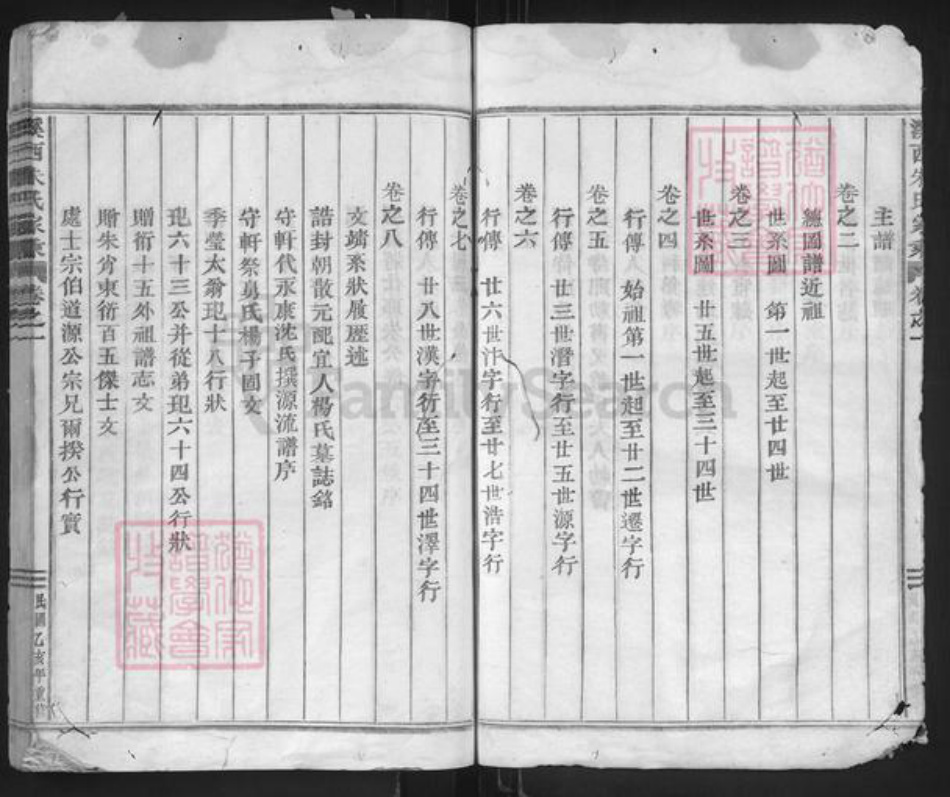 主譜
卷之二
總圖譜近祖
世系圖 第一世起至廿四世
卷之三
世系圖 廿五世起至三十四世
卷之四
行傳 始祖第一世起至廿二世遷字行
卷之五
行傳 廿三世潛字行至廿五世源字行
卷之六
行傳 廿六世汴字行至廿七世浩字行
卷之七
行傳 廿八世漢字行至三十四世澤字行
卷之八
文靖系狀履歷述
誥封朝散元配宜人楊氏墓誌銘
守軒代永康沈氏撰源流譜序
守軒祭舅氏楊子固文
季瑩太翁玘十八行狀
玘六十三公并從弟玘六十四公行狀
贈衍十五外祖譜志文
贈朱肖東衍百五傑士文
處士宗伯道源公宗兄爾揆公行實
溪西朱氏家乘 卷之一
民國乙亥年重修
猶他家譜學會收藏
FamilySearch